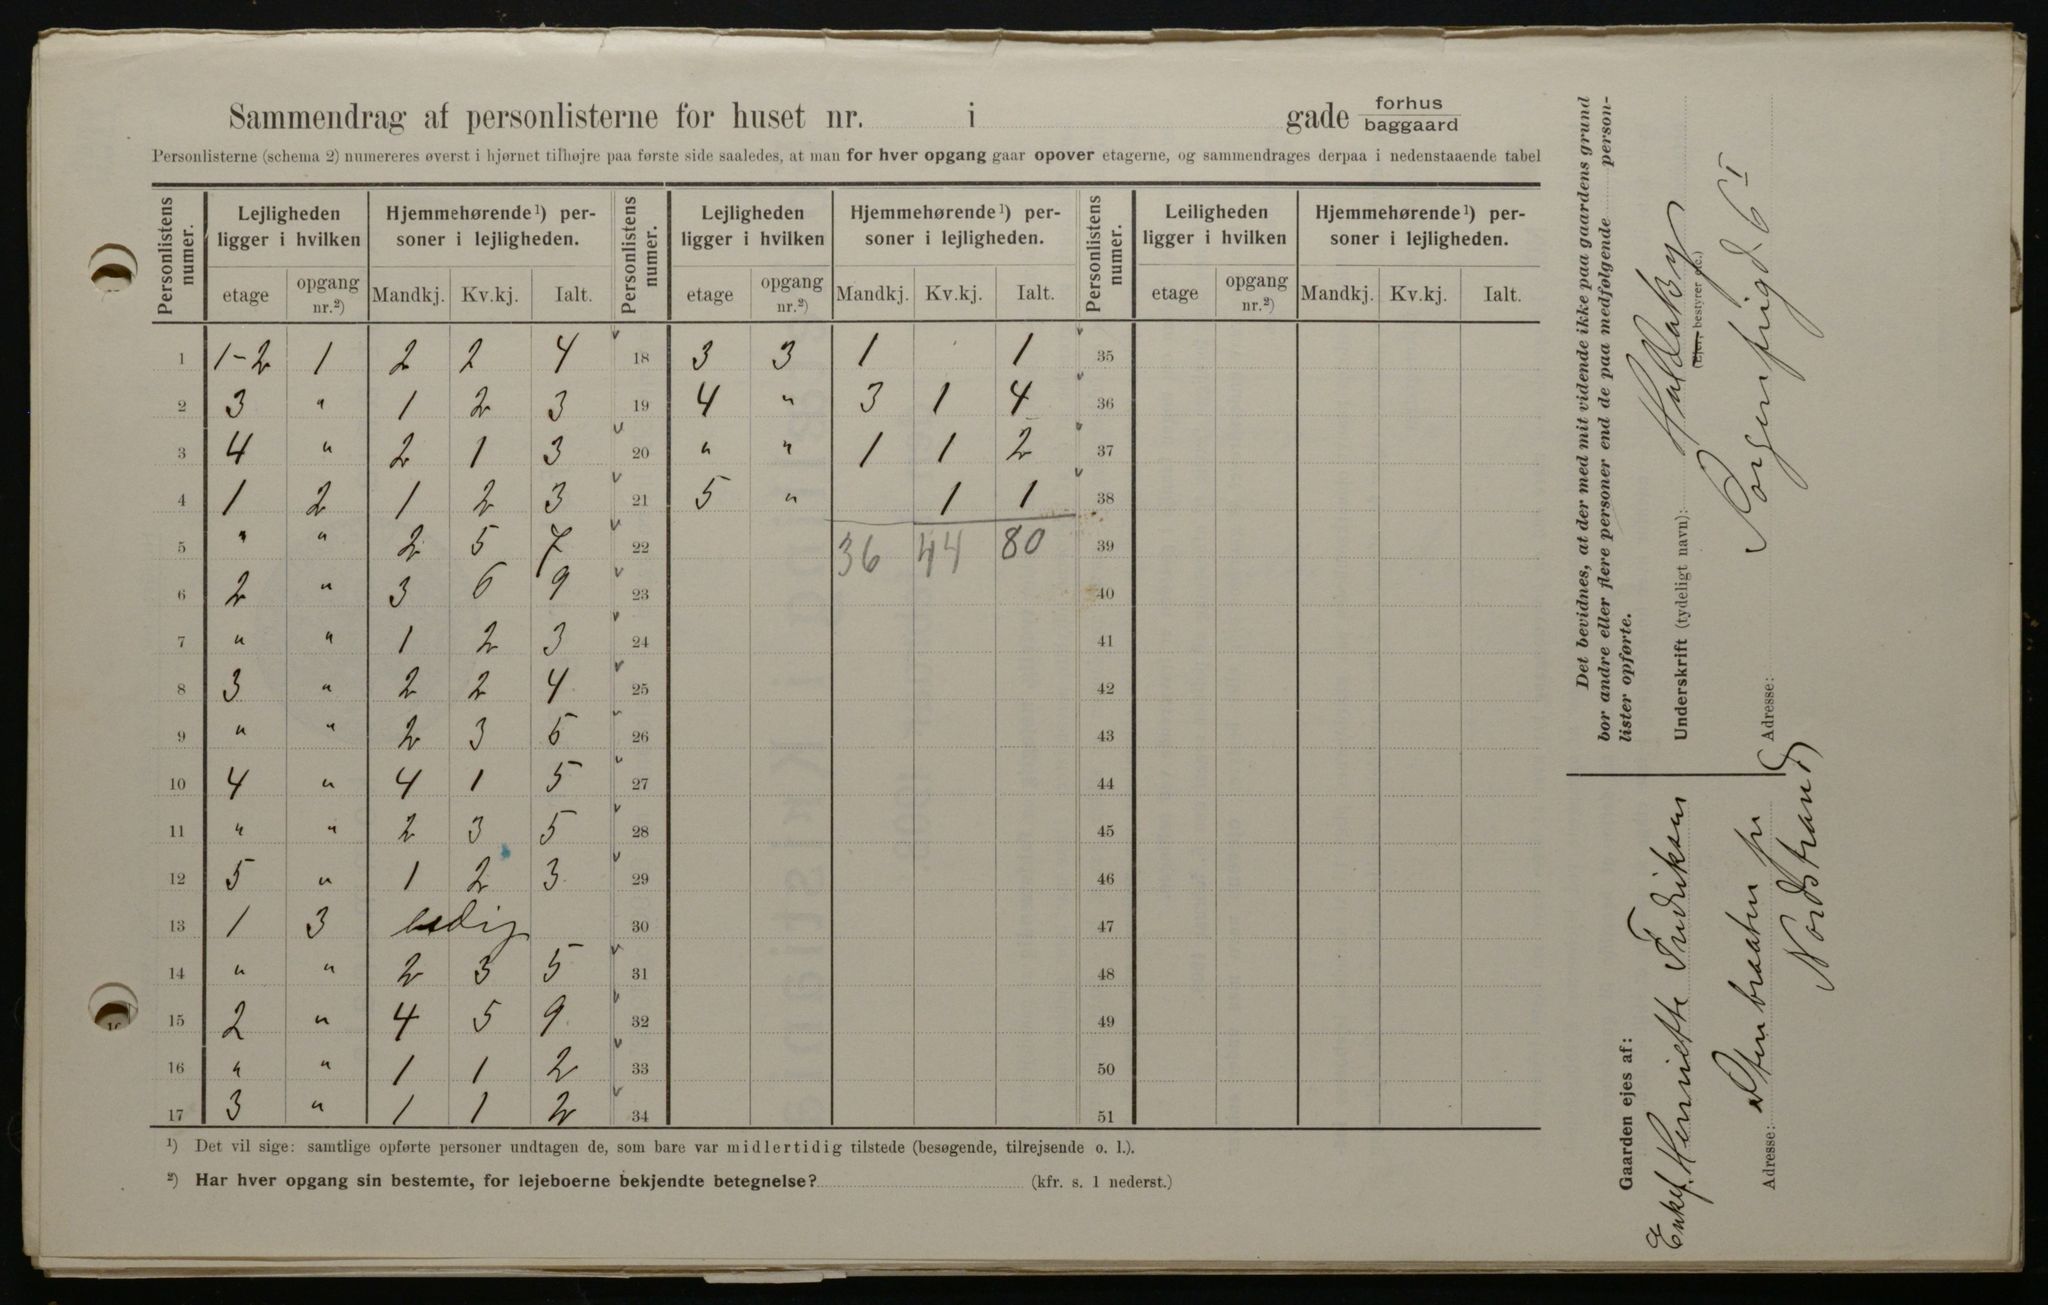 Sammendrag af personlisterne for huset nr. i gade forhus baggaard
Personlisterne (schema 2) numereres øverst i hjørnet tilhøjre paa første side saaledes, at man for hver opgang gaar opover etagerne, og sammendrages derpaa i nedenstaaende tabel
Personlistens numer. Lejligheden ligger i hvilken Hjemmehørende¹) personer i lejligheden. Personlistens numer. Lejligheden ligger i hvilken Hjemmehørende¹) personer i lejligheden. Personlistens numer. Leiligheden ligger i hvilken Hjemmehørende¹) personer i lejligheden.
etage opgang nr.²) Mandkj. Kv.kj. Ialt. etage opgang nr.²) Mandkj. Kv.kj. Ialt. etage opgang nr.²) Mandkj. Kv.kj. Ialt.
1 1-2 1 2 2 4 18 3 3 1 1 35
2 3 " 1 2 3 19 4 " 3 1 4 36
3 4 " 2 1 3 20 " " 1 1 2 37
4 1 2 1 2 3 21 5 " 1 1 38
5 " " 2 5 7 22 36 44 80 39
6 2 " 3 6 9 23 40
7 " " 1 2 3 24 41
8 3 " 2 2 4 25 42
9 " " 2 3 5 26 43
10 4 " 4 1 5 27 44
11 " " 2 3 5 28 45
12 5 " 1 2 3 29 46
13 1 3 ledig 30 47
14 " " 2 3 5 31 48
15 2 " 4 5 9 32 49
16 " " 1 1 2 33 50
17 3 " 1 1 2 34 51
¹) Det vil sige: samtlige opførte personer undtagen de, som bare var midlertidig tilstede (besøgende, tilrejsende o. l.).
²) Har hver opgang sin bestemte, for lejeboerne bekjendte betegnelse? (kfr. s. 1 nederst.)
Det bevidnes, at der med mit vidende ikke paa gaardens grund
bor andre eller flere personer end de paa medfølgende person-
lister opførte.
Underskrift (tydeligt navn):
(Ejer, bestyrer etc.)
Adresse: Sorgenfrigd. 6 I
Gaarden ejes af:
Enkef. Henriette Fredriksen
Adresse: Stenbraaten pr
Nordstrand